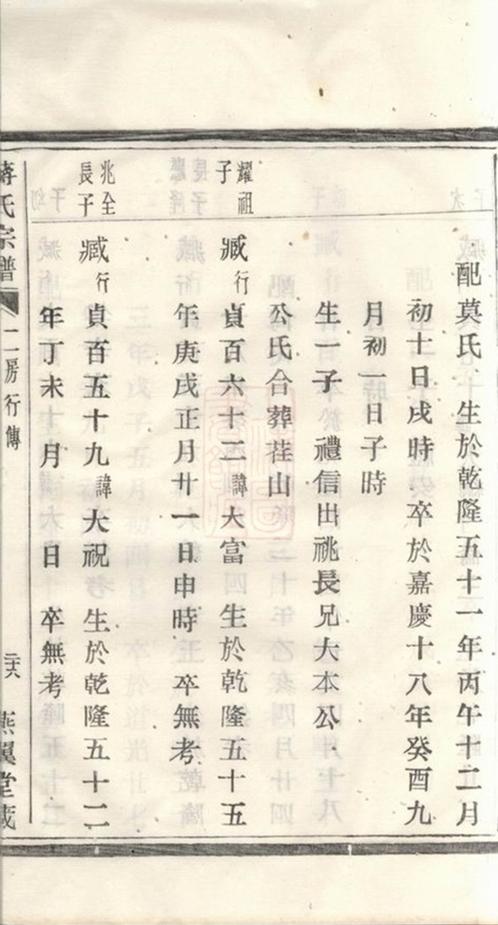 配莫氏 生於乾隆五十一年丙午十二月
初十日戌時 卒於嘉慶十八年癸酉九
月初一日子時
生一子 禮信出祧長兄大本公
公氏合葬茬山
耀祖
子
臧行貞百六十二諱大富 生於乾隆五十五
年庚戌正月廿一日申時 卒無考
兆全
長子
臧行貞百五十九諱大祝 生於乾隆五十二
年丁未 月 日 卒無考
蔣氏宗譜 二房行傳 二六 燕翼堂藏